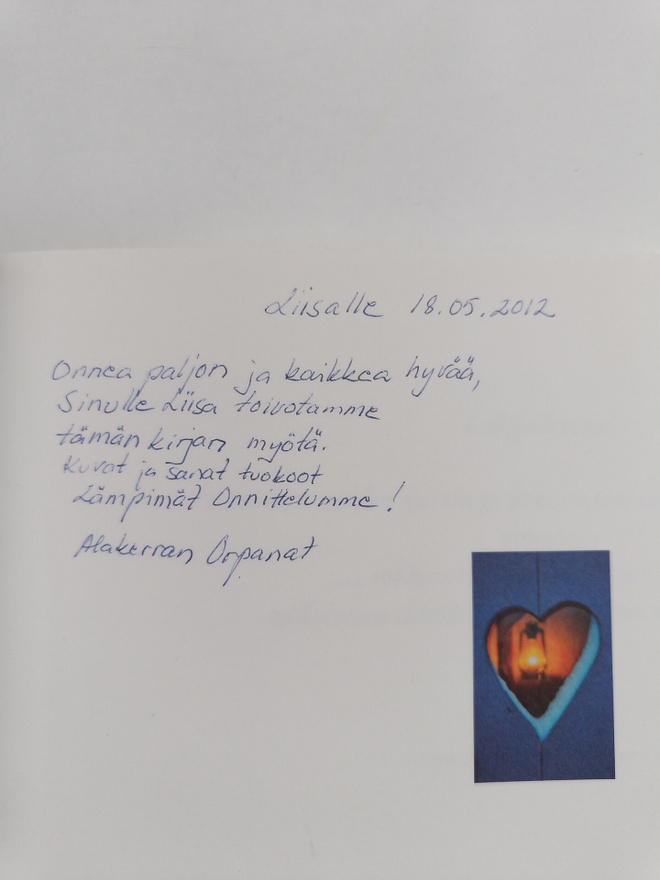 Liisalle 18.05.2012
Onnea paljon ja kaikkea hyvää,
Sinulle Liisa toivotamme
tämän kirjan myötä.
Kuvat ja sanat tuokoot
Lämpimät Onnittelumme!
Alakerran Orpanat